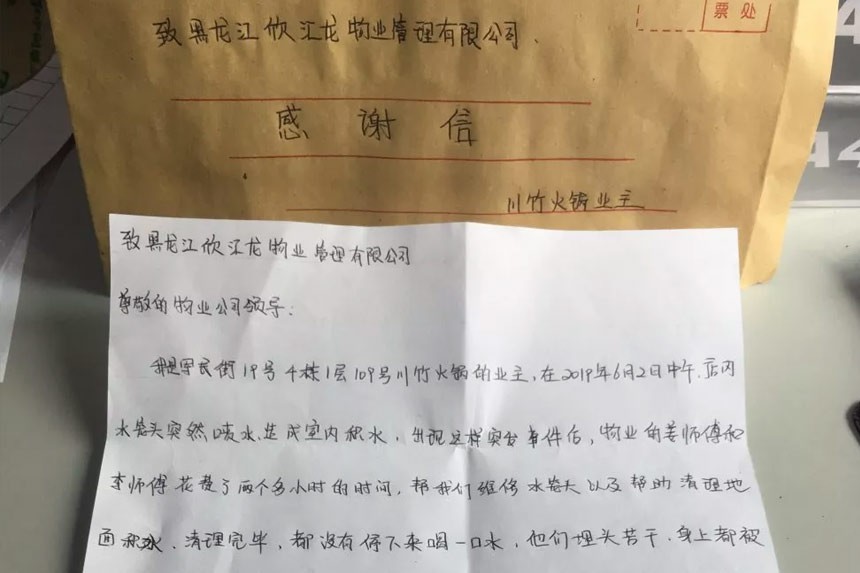 票处
致黑龙江欣汇龙物业管理有限公司.
感谢信
川竹火锅业主
致黑龙江欣汇龙物业管理有限公司
尊敬的物业公司领导:
我是军民街19号4栋1层109号川竹火锅的业主,在2019年6月2日中午,店内
水龙头突然喷水,造成室内积水,出现这样突发事件后,物业的姜师傅和
李师傅花费了两个多小时的时间,帮我们维修水龙头以及帮助清理地
面积水,清理完毕,都没有停下来喝一口水,他们埋头苦干,身上都被
A4